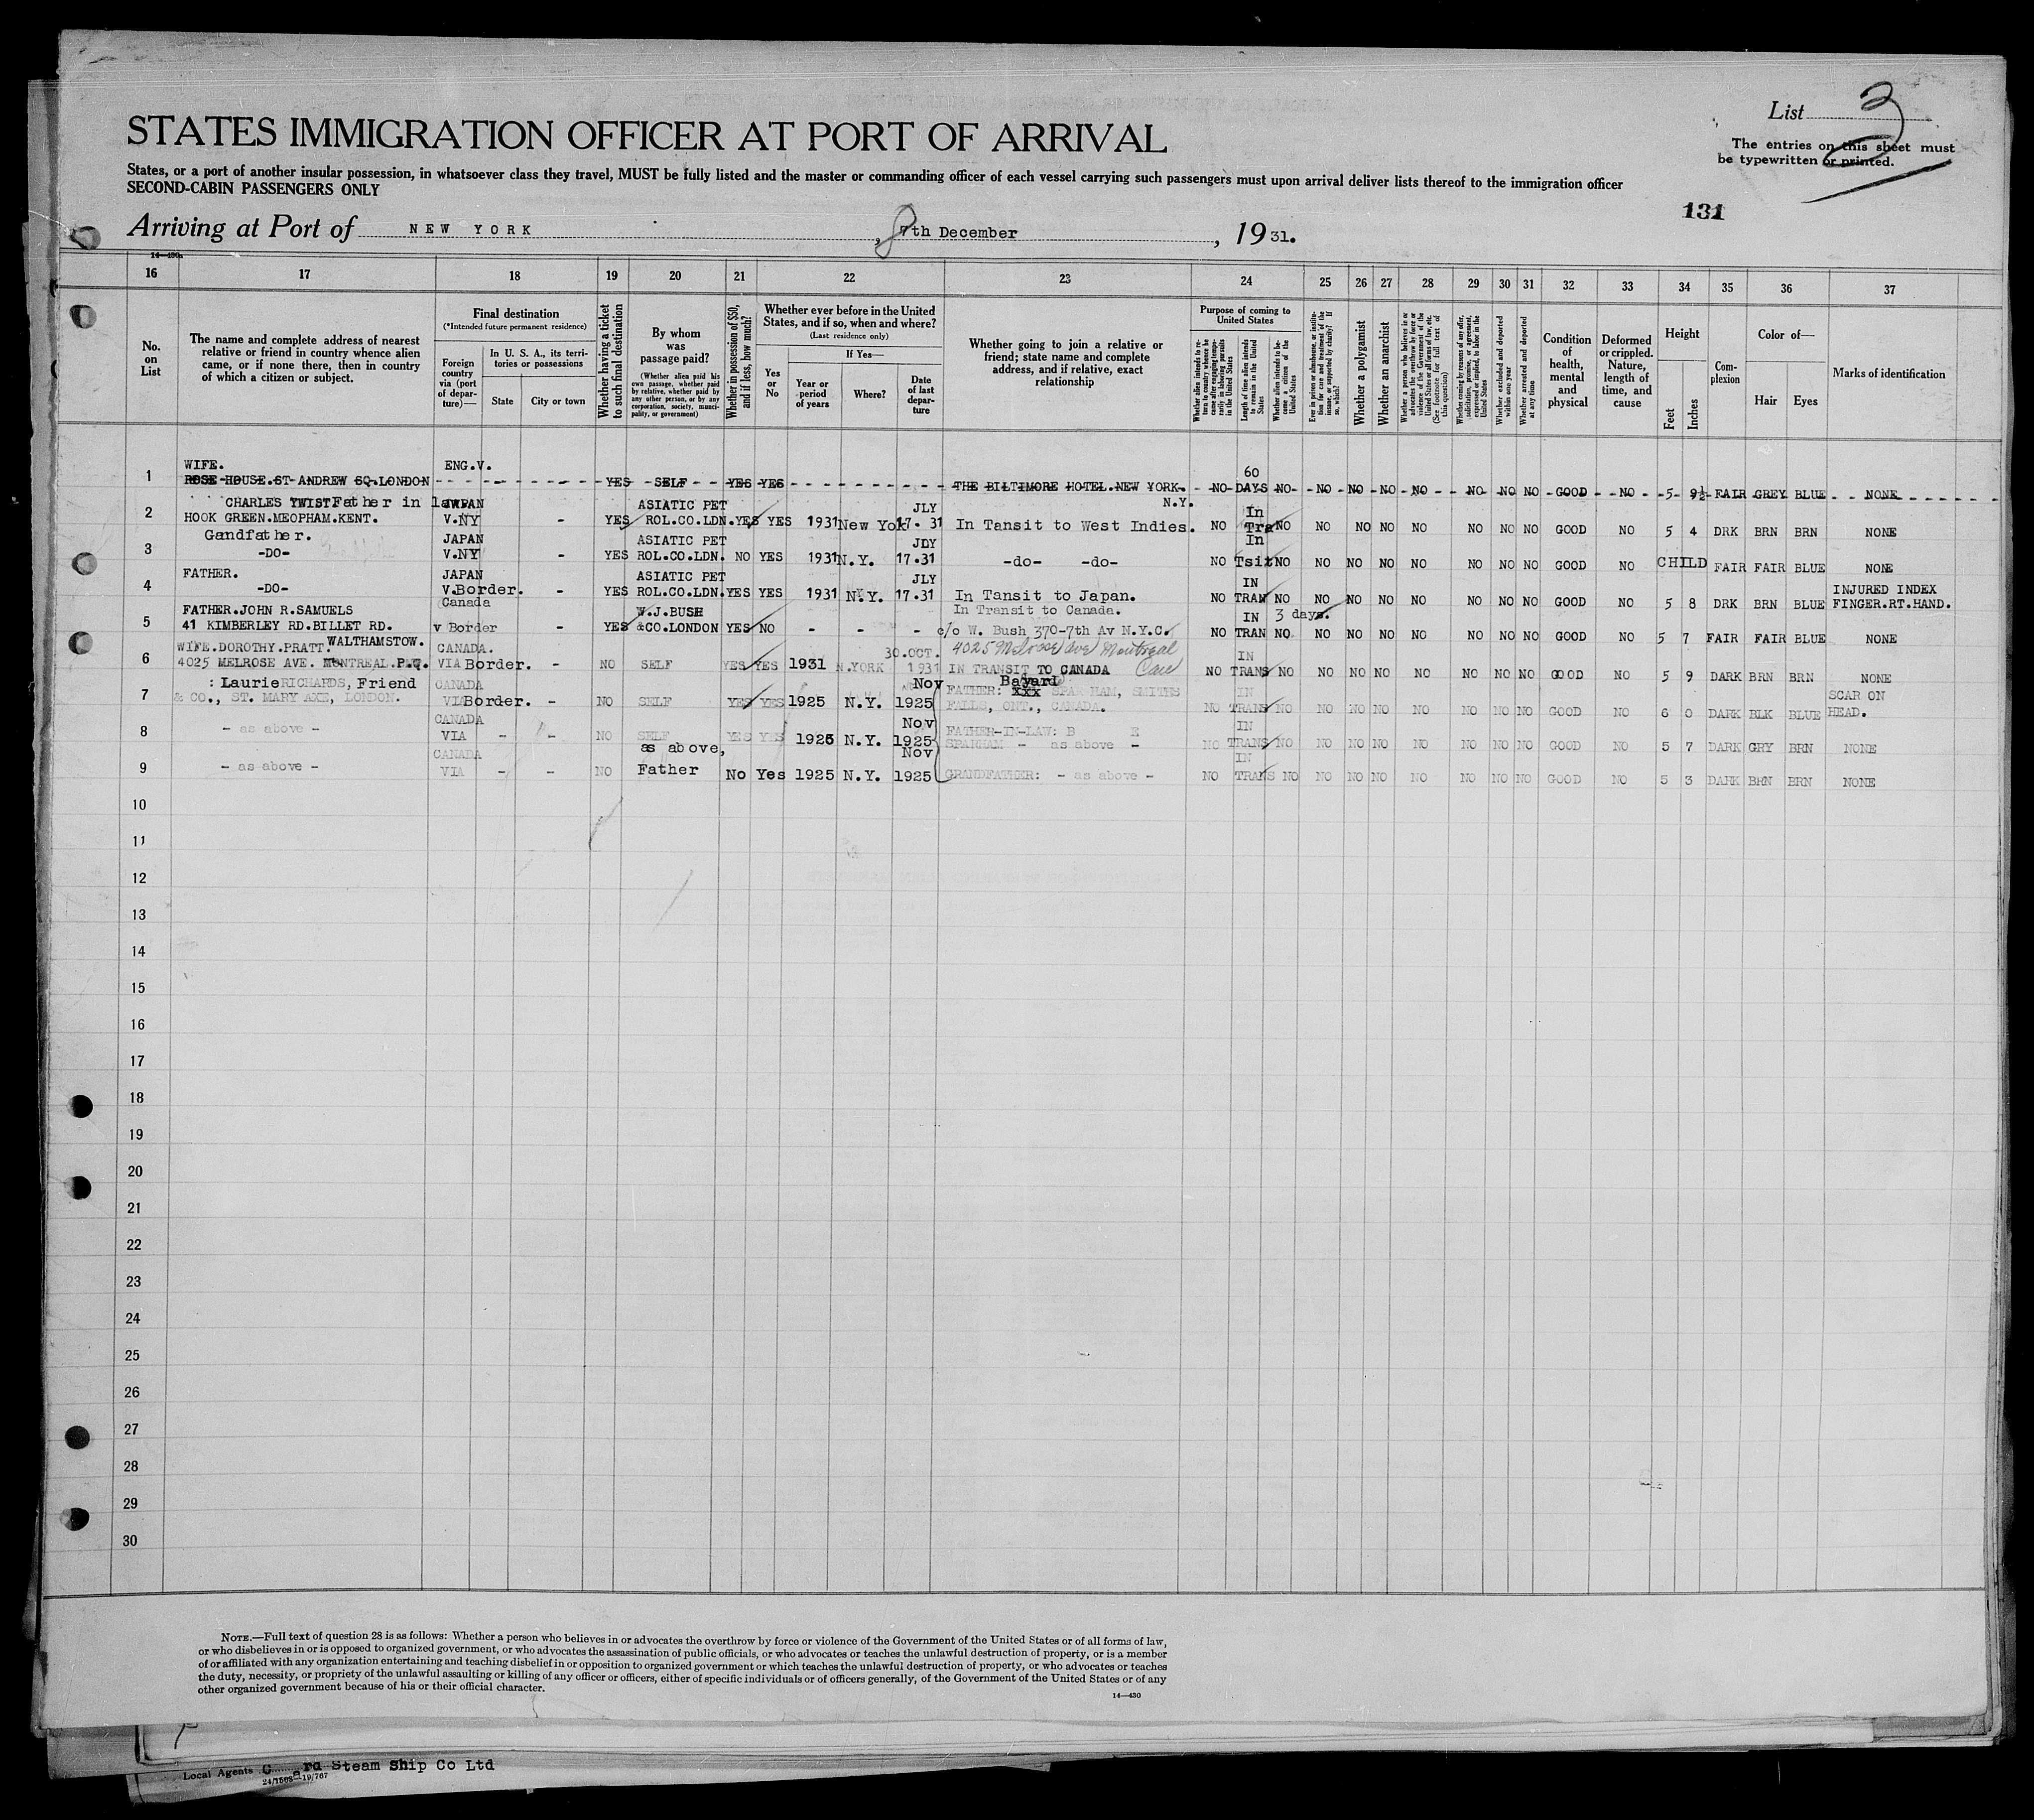 List 3
STATES IMMIGRATION OFFICER AT PORT OF ARRIVAL
The entries on this sheet must
be typewritten or printed.
States, or a port of another insular possession, in whatsoever class they travel, MUST be fully listed and the master or commanding officer of each vessel carrying such passengers must upon arrival deliver lists thereof to the immigration officer
SECOND-CABIN PASSENGERS ONLY
131
Arriving at Port of NEW YORK , 7th December , 19 31.
14—430a
16 17 18 19 20 21 22 23 24 25 26 27 28 29 30 31 32 33 34 35 36 37
No. on List
The name and complete address of nearest relative or friend in country whence alien came, or if none there, then in country of which a citizen or subject.
Final destination
(*Intended future permanent residence)
Foreign country via (port of departure)—
In U. S. A., its territories or possessions
State
City or town
Whether having a ticket to such final destination
By whom was passage paid?
(Whether alien paid his own passage, whether paid by relative, whether paid by any other person, or by any corporation, society, municipality, or government)
Whether in possession of $50, and if less, how much?
Whether ever before in the United States, and if so, when and where?
(Last residence only)
Yes or No
If Yes—
Year or period of years
Where?
Date of last departure
Whether going to join a relative or friend; state name and complete address, and if relative, exact relationship
Purpose of coming to United States
Whether alien intends to return to country whence he came after engaging temporarily in laboring pursuits in the United States
Length of time alien intends to remain in the United States
Whether alien intends to become a citizen of the United States
Ever in prison or almshouse, or institution for care and treatment of the insane, or supported by charity? If so, which?
Whether a polygamist
Whether an anarchist
Whether a person who believes in or advocates the overthrow by force or violence of the Government of the United States or all forms of law, etc. (See footnote for full text of this question)
Whether coming by reasons of any offer, solicitation, promise, or agreement, expressed or implied, to labor in the United States
Whether excluded and deported within one year
Whether arrested and deported at any time
Condition of health, mental and physical
Deformed or crippled. Nature, length of time, and cause
Height
Feet
Inches
Complexion
Color of—
Hair
Eyes
Marks of identification
WIFE. ENG.V. 60
1 ROSE HOUSE.ST ANDREW SQ.LONDON YES SELF YES YES THE BILTIMORE HOTEL.NEW YORK. NO DAYS NO NO NO NO NO NO NO NO GOOD NO 5 9½ FAIR GREY BLUE NONE
CHARLES TWIST Father in law. JAPAN ASIATIC PET JLY N.Y. In
2 HOOK GREEN.MEOPHAM.KENT. V.NY - YES ROL.CO.LDN. YES YES 1931 New Yok 17.31 In Tansit to West Indies. NO Tra NO NO NO NO NO NO NO NO GOOD NO 5 4 DRK BRN BRN NONE
Gandfather. JAPAN ASIATIC PET JLY In
3 -DO- V.NY - YES ROL.CO.LDN. NO YES 1931 N.Y. 17.31 -do- -do- NO Tsit NO NO NO NO NO NO NO NO GOOD NO CHILD FAIR FAIR BLUE NONE
FATHER. JAPAN ASIATIC PET JLY IN INJURED INDEX
4 -DO- V.Border. - YES ROL.CO.LDN. YES YES 1931 N.Y. 17.31 In Tansit to Japan. NO TRAN NO NO NO NO NO NO NO NO GOOD NO 5 8 DRK BRN BLUE FINGER.RT.HAND.
FATHER.JOHN R.SAMUELS Canada W.J.BUSH In Transit to Canada. IN 3 days.
5 41 KIMBERLEY RD.BILLET RD. v Border YES &CO.LONDON YES NO - - - c/o W. Bush 370-7th Av N.Y.C. NO TRAN NO NO NO NO NO NO NO NO GOOD NO 5 7 FAIR FAIR BLUE NONE
WALTHAMSTOW.
WIFE.DOROTHY.PRATT. CANADA. 30.OCT. 4025 Melrose Ave Montreal IN
6 4025 MELROSE AVE. MONTREAL.P.Q. VIA Border. - NO SELF YES YES 1931 N.YORK 1931 IN TRANSIT TO CANADA Can NO TRANS NO NO NO NO NO NO NO NO GOOD NO 5 9 DARK BRN BRN NONE
: Laurie RICHARDS, Friend CANADA Nov Bayard FATHER: xxx SPARHAM, SMITHS IN SCAR ON
7 & CO., ST. MARY AXE, LONDON. VIA Border. - NO SELF YES YES 1925 N.Y. 1925 FALLS, ONT., CANADA. NO TRANS NO NO NO NO NO NO NO NO GOOD NO 6 0 DARK BLK BLUE HEAD.
CANADA Nov FATHER-IN-LAW: B E IN
8 - as above - VIA - - NO SELF YES YES 1925 N.Y. 1925 SPARHAM - as above - NO TRANS NO NO NO NO NO NO NO NO GOOD NO 5 7 DARK GRY BRN NONE
CANADA as above, Nov IN
9 - as above - VIA - - NO Father No Yes 1925 N.Y. 1925 GRANDFATHER: - as above - NO TRANS NO NO NO NO NO NO NO NO GOOD NO 5 3 DARK BRN BRN NONE
10
11
12
13
14
15
16
17
18
19
20
21
22
23
24
25
26
27
28
29
30
NOTE.—Full text of question 28 is as follows: Whether a person who believes in or advocates the overthrow by force or violence of the Government of the United States or of all forms of law,
or who disbelieves in or is opposed to organized government, or who advocates the assassination of public officials, or who advocates or teaches the unlawful destruction of property, or is a member
of or affiliated with any organization entertaining and teaching disbelief in or opposition to organized government or which teaches the unlawful destruction of property, or who advocates or teaches
the duty, necessity, or propriety of the unlawful assaulting or killing of any officer or officers, either of specific individuals or of officers generally, of the Government of the United States or of any
other organized government because of his or their official character.
14—430
Local Agents C rd Steam Ship Co Ltd